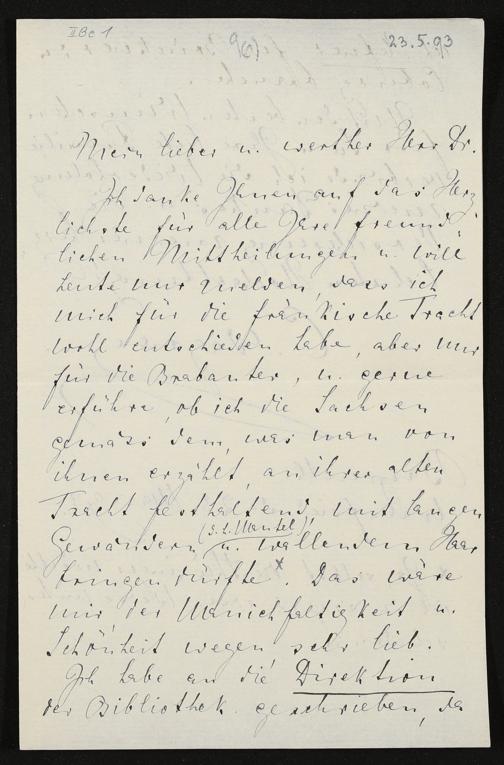 II Bc 1
9(6)
23.5.93
Mein lieber u. werther Herr Dr.
Ich danke Ihnen auf das Herz
lichste für alle Ihre freund
lichen Mittheilungen u. will
heute nur melden, dass ich
mich für die fränkische Tracht
wohl entschieden habe, aber nur
für die Brabanter, u. gerne
erführe, ob ich die Sachsen
gemäss dem, was man von
ihnen erzählt, an ihrer alten
Tracht festhaltend, mit langen
(s. l. Mantel)
Gewändern u. wallendem Haar
bringen dürfte x. Das wäre
mir der Manichfaltigkeit u.
Schönheit wegen sehr lieb.
Ich habe an die Direktion
der Bibliothek geschrieben, da